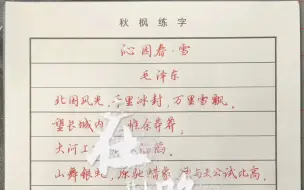 秋枫练字
沁园春·雪
毛泽东
北国风光,千里冰封,万里雪飘。
望长城内 惟余莽莽;
大河上 滔滔
山舞银蛇,原驰蜡象,欲与天公试比高。